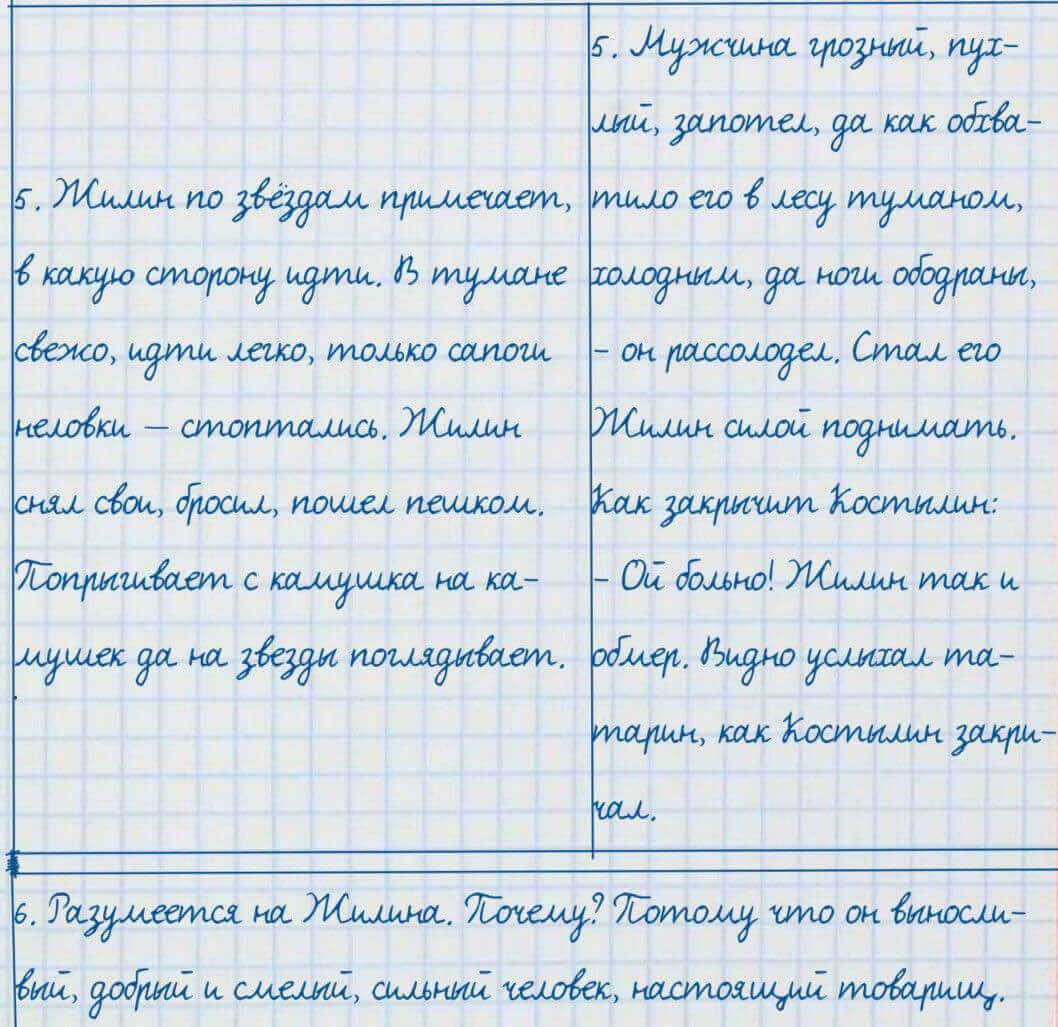 5. Жилин по звёздам примечает,
в какую сторону идти. В тумане
свежо, идти легко, только сапоги
неловки — стоптались. Жилин
снял свои, бросил, пошел пешком.
Попрыгивает с камушка на ка-
мушек да на звезды поглядывает.
5. Мужчина грозный, пух-
лый, запотел, да как обхва-
тило его в лесу туманом,
холодным, да ноги ободраны,
- он рассолодел. Стал его
Жилин силой поднимать.
Как закрычит Костылин:
- Ой больно! Жилин так и
обмер. Видно услыхал та-
тарин, как Костылин закри-
чал.
6. Разумеется на Жилина. Почему? Потому что он выносли-
вый, добрый и смелый, сильный человек, настоящий товарищ.